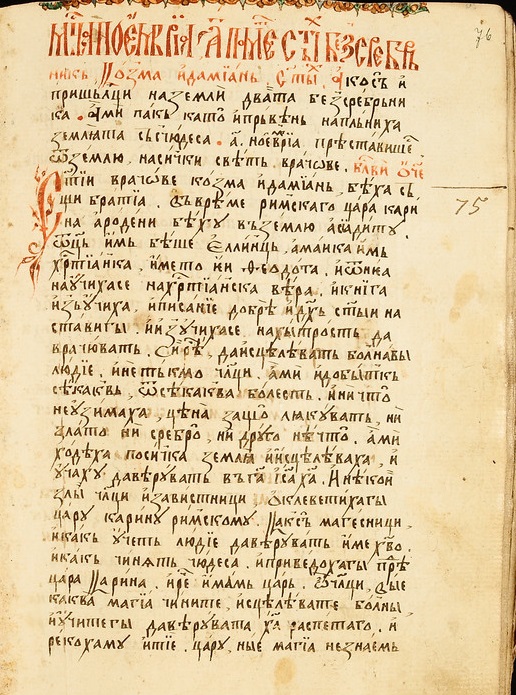 76
мц҃а ноемврїа · а҃ · паме ст҃ы безсребр
ници, Козма идамїань, ст҃ы, ꙗкосѣ и
пришьлци на землѧ двата безсребрьни
ка · ами пакь като ипрьвень напльниха
землꙗта сьсчюдеса · а҃ · ноеврїа прѣставише
ѿ землю, насички свѣть врачове · бл҃ви ѿче
Стїи врачове козма идамїань, бѣха сь
щи братїа · въврѣме римскаго цара кари
на ародени бѣху въземлю асїадиту ·
ѿц҃ь имь бѣше Еллинць, амаика имь
хрⷭ҇тїанка, името ѝи Ѳеодота · иѿнеа
научихасе нахрⷭ҇тїанска вѣра, икнига
изьучиха, иписанїе добрѣ
ставиги · иизучихасе нахытрость да
врачювать · сирѣⷱ, даисцелѣвать болнавы
людїе · инетькмо чл҃ци, ами идобытькь
сѣкакьвь, ѿсѣкаква болесть · ини что
неузимаха, цѣна защо люкувать, ни
злато ни сребро, ни друго нѣчто · ами
ходѣха посичка землꙗ иисцѣлѣваха, и
учаху давѣрувать вьга іс҃а ха҃ · Инѣкои
злы чл҃ци изавистници ѡклеветихагы
цару карину римскому · Какси магесници,
икакь учеть людїе давѣрувать име хв҃о
икакь чинꙗть чюдеса · иприведохагы прѣⷣ
цара Карина · ирⷱе имамь царь · ѽ чл҃ци, вые
каква магїа чините, исцѣлѣвате болны,
иучитегы давѣрувата ха҃ распетаго · и
рекохаму итїе · цару, ные магїа незнаемь
75